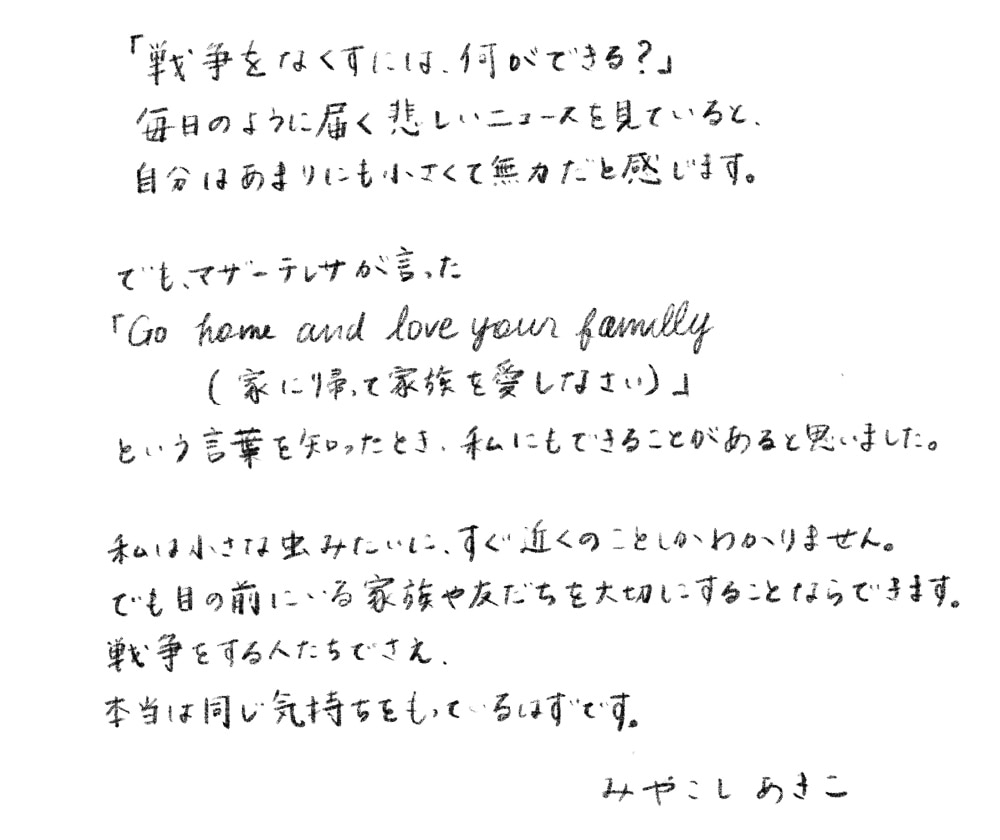 「戦争をなくすには、何ができる?」
毎日のように届く悲しいニュースを見ていると、
自分はあまりにも小さくて無力だと感じます。
でも、マザーテレサが言った
「Go home and love your familly
(家に帰って家族を愛しなさい)」
という言葉を知ったとき、私にもできることがあると思いました。
私は小さな虫みたいに、すぐ近くのことしかわかりません。
でも目の前にいる家族や友だちを大切にすることならできます。
戦争をする人たちでさえ、
本当は同じ気持ちをもっているはずです。
みやこし あきこ